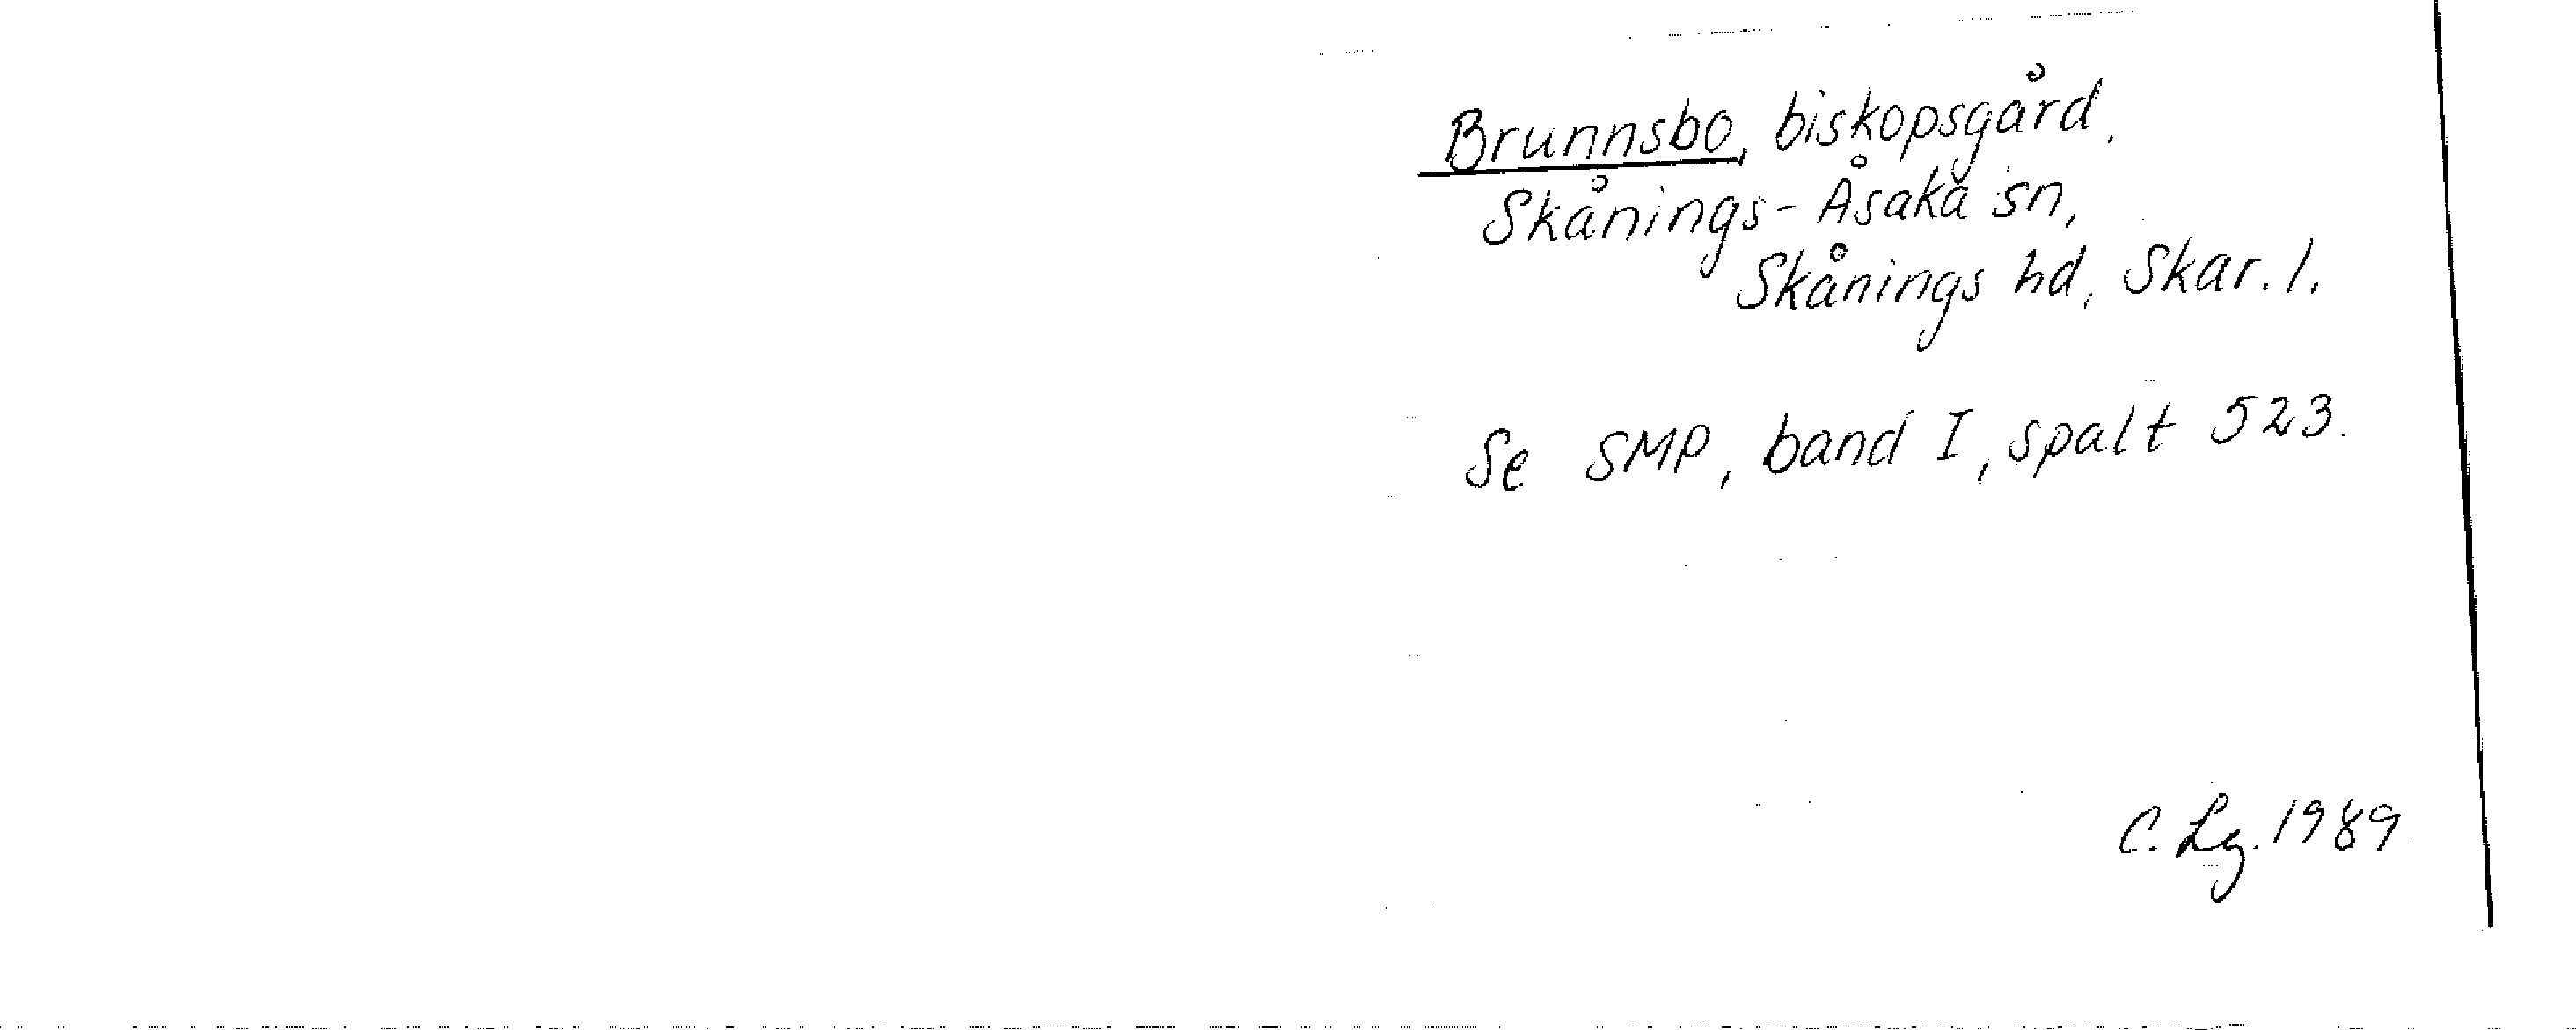 Brunnsbo, biskopsgård,
Skånings-Åsaka sn,
Skånings hd, Skar. l.
Se SMP, band I, spalt 523.
C. Lg. 1989